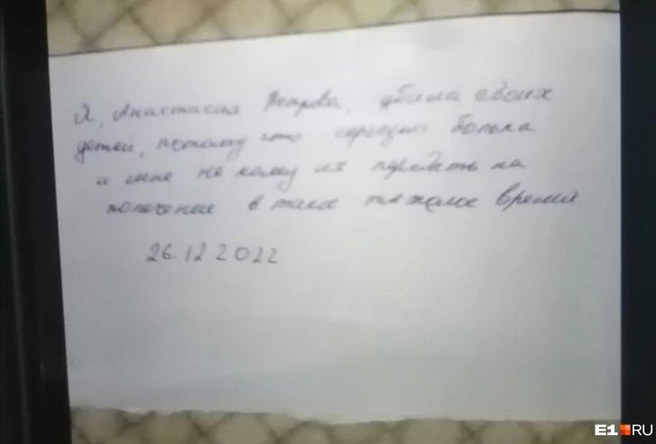 Я, Анастасия Петрова, убила своих
детей, потому что серьезно больна
и мне не кому их передать на
попечение в такое тяжелое время
26.12 2022
E1.RU